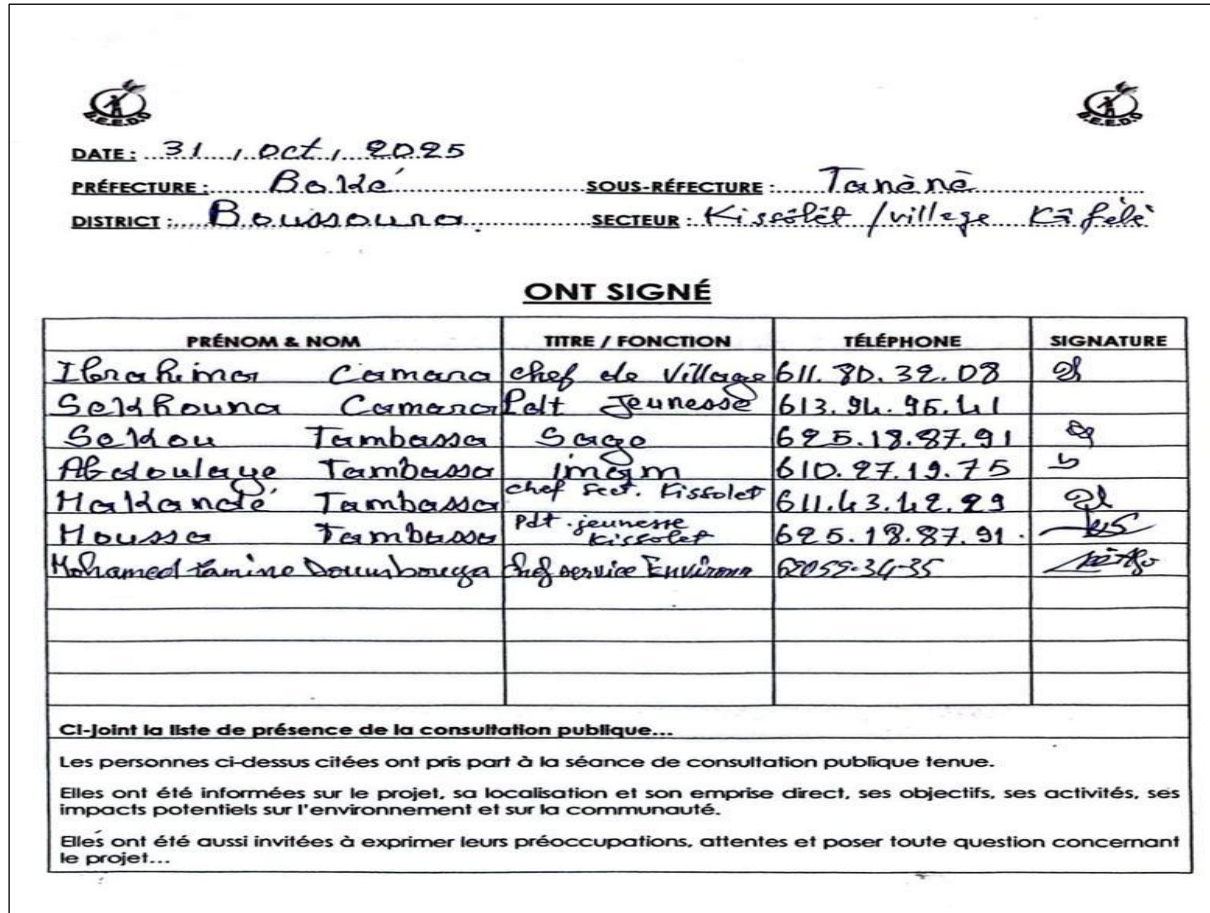 B.E.E.D.D B.E.E.D.D
DATE : 31, Oct, 2025
PRÉFECTURE : Boké SOUS-RÉFECTURE : Tanènè
DISTRICT : Boussoura SECTEUR : Kissolet / village
ONT SIGNÉ
PRÉNOM & NOM TITRE / FONCTION TÉLÉPHONE SIGNATURE
Ibrahima Camara chef de Village 611.80.32.08
Sekhouna Camara Pdt Jeunesse 613.94.95.41
Sekou Tambassa Sage 625.18.87.91
Abdoulaye Tambassa imam 610.27.19.75
Makandé Tambassa chef sect. Kissolet 611.43.42.29
Moussa Tambassa Pdt. jeunesse Kissolet 625.18.87.91.
Mohamed Lamine Doumbouya Chef service Environ 62059-34-35
Ci-joint la liste de présence de la consultation publique...
Les personnes ci-dessus citées ont pris part à la séance de consultation publique tenue.
Elles ont été informées sur le projet, sa localisation et son emprise direct, ses objectifs, ses activités, ses
impacts potentiels sur l'environnement et sur la communauté.
Elles ont été aussi invitées à exprimer leurs préoccupations, attentes et poser toute question concernant
le projet...